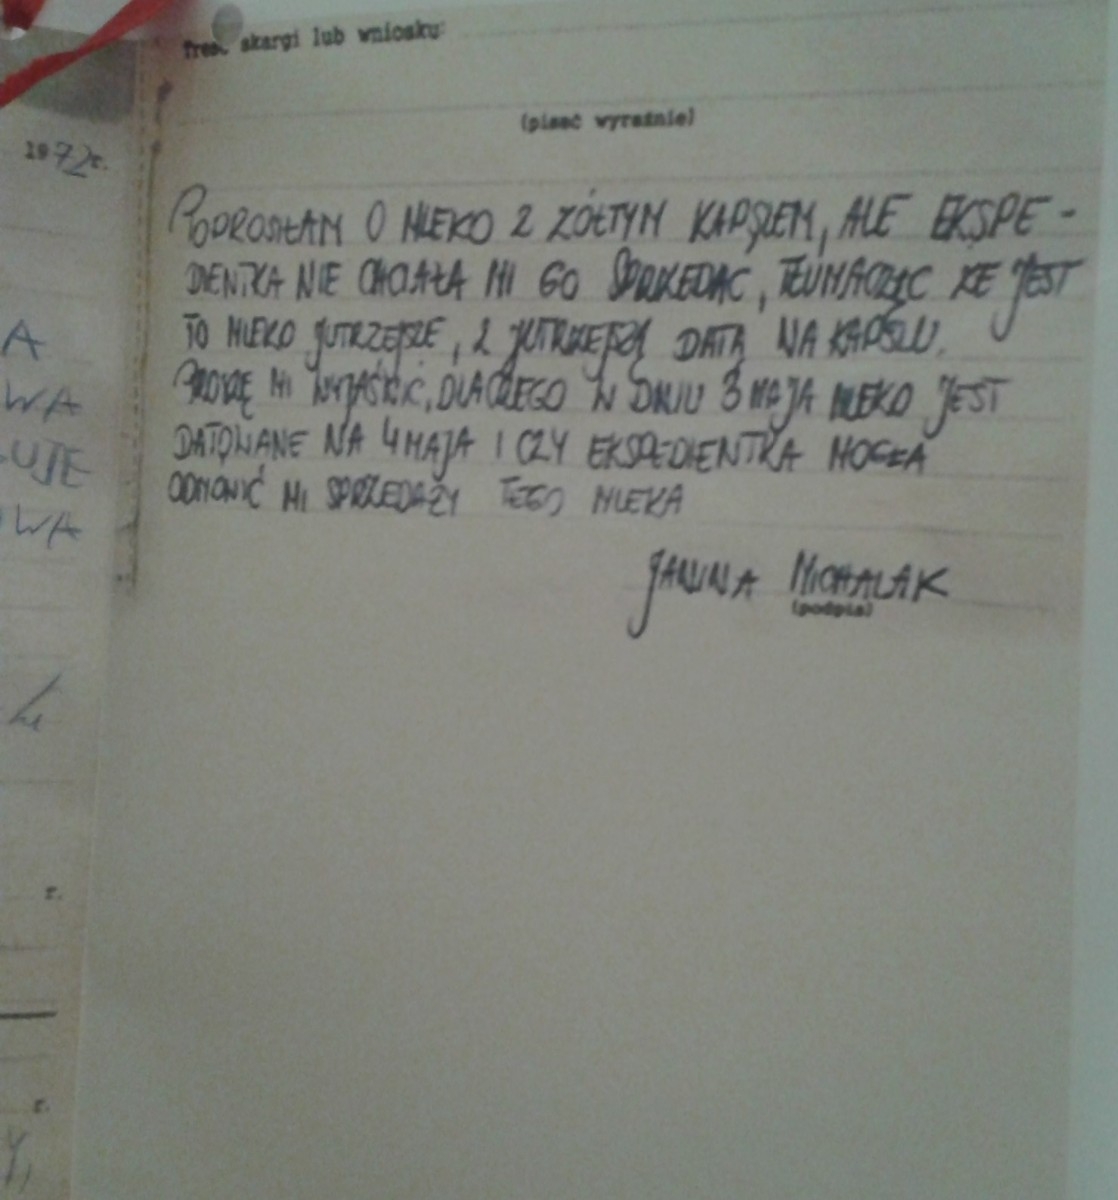 Treść skargi lub wniosku:
(pisać wyraźnie)
1972 r.
POPROSIŁAM O MLEKO Z ŻÓŁTYM KAPSLEM, ALE EKSPE-
DIENTKA NIE CHCIAŁA MI GO SPRZEDAĆ, TŁUMACZĄC ŻE JEST
TO MLEKO JUTRZEJSZE, Z JUTRZEJSZĄ DATĄ NA KAPSLU.
PROSZĘ MI WYJAŚNIĆ, DLACZEGO W DNIU 3 MAJA MLEKO JEST
DATOWANE NA 4 MAJA I CZY EKSPEDIENTKA MOGŁA
ODMÓWIĆ MI SPRZEDAŻY TEGO MLEKA
JANINA MICHALAK
(podpis)
A
WA
UJE
WA
r.
r.